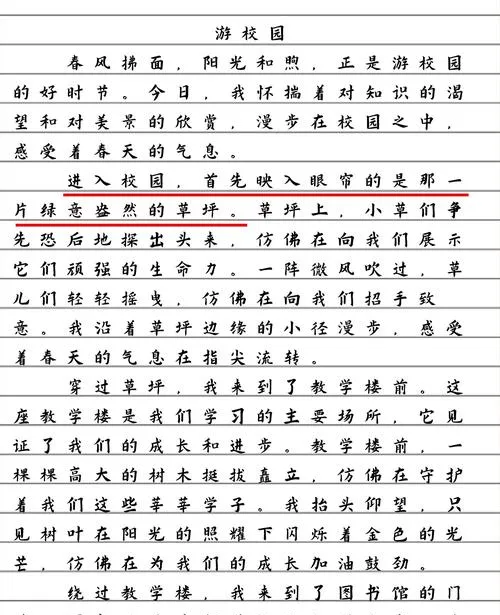 游校园
春风拂面，阳光和煦，正是游校园
的好时节。今日，我怀揣着对知识的渴
望和对美景的欣赏，漫步在校园之中，
感受着春天的气息。
进入校园，首先映入眼帘的是那一
片绿意盎然的草坪。草坪上，小草们争
先恐后地探出头来，仿佛在向我们展示
它们顽强的生命力。一阵微风吹过，草
儿们轻轻摇曳，仿佛在向我们招手致
意。我沿着草坪边缘的小径漫步，感受
着春天的气息在指尖流转。
穿过草坪，我来到了教学楼前。这
座教学楼是我们学习的主要场所，它见
证了我们的成长和进步。教学楼前，一
棵棵高大的树木挺拔矗立，仿佛在守护
着我们这些莘莘学子。我抬头仰望，只
见树叶在阳光的照耀下闪烁着金色的光
芒，仿佛在为我们的成长加油鼓劲。
绕过教学楼，我来到了图书馆的门